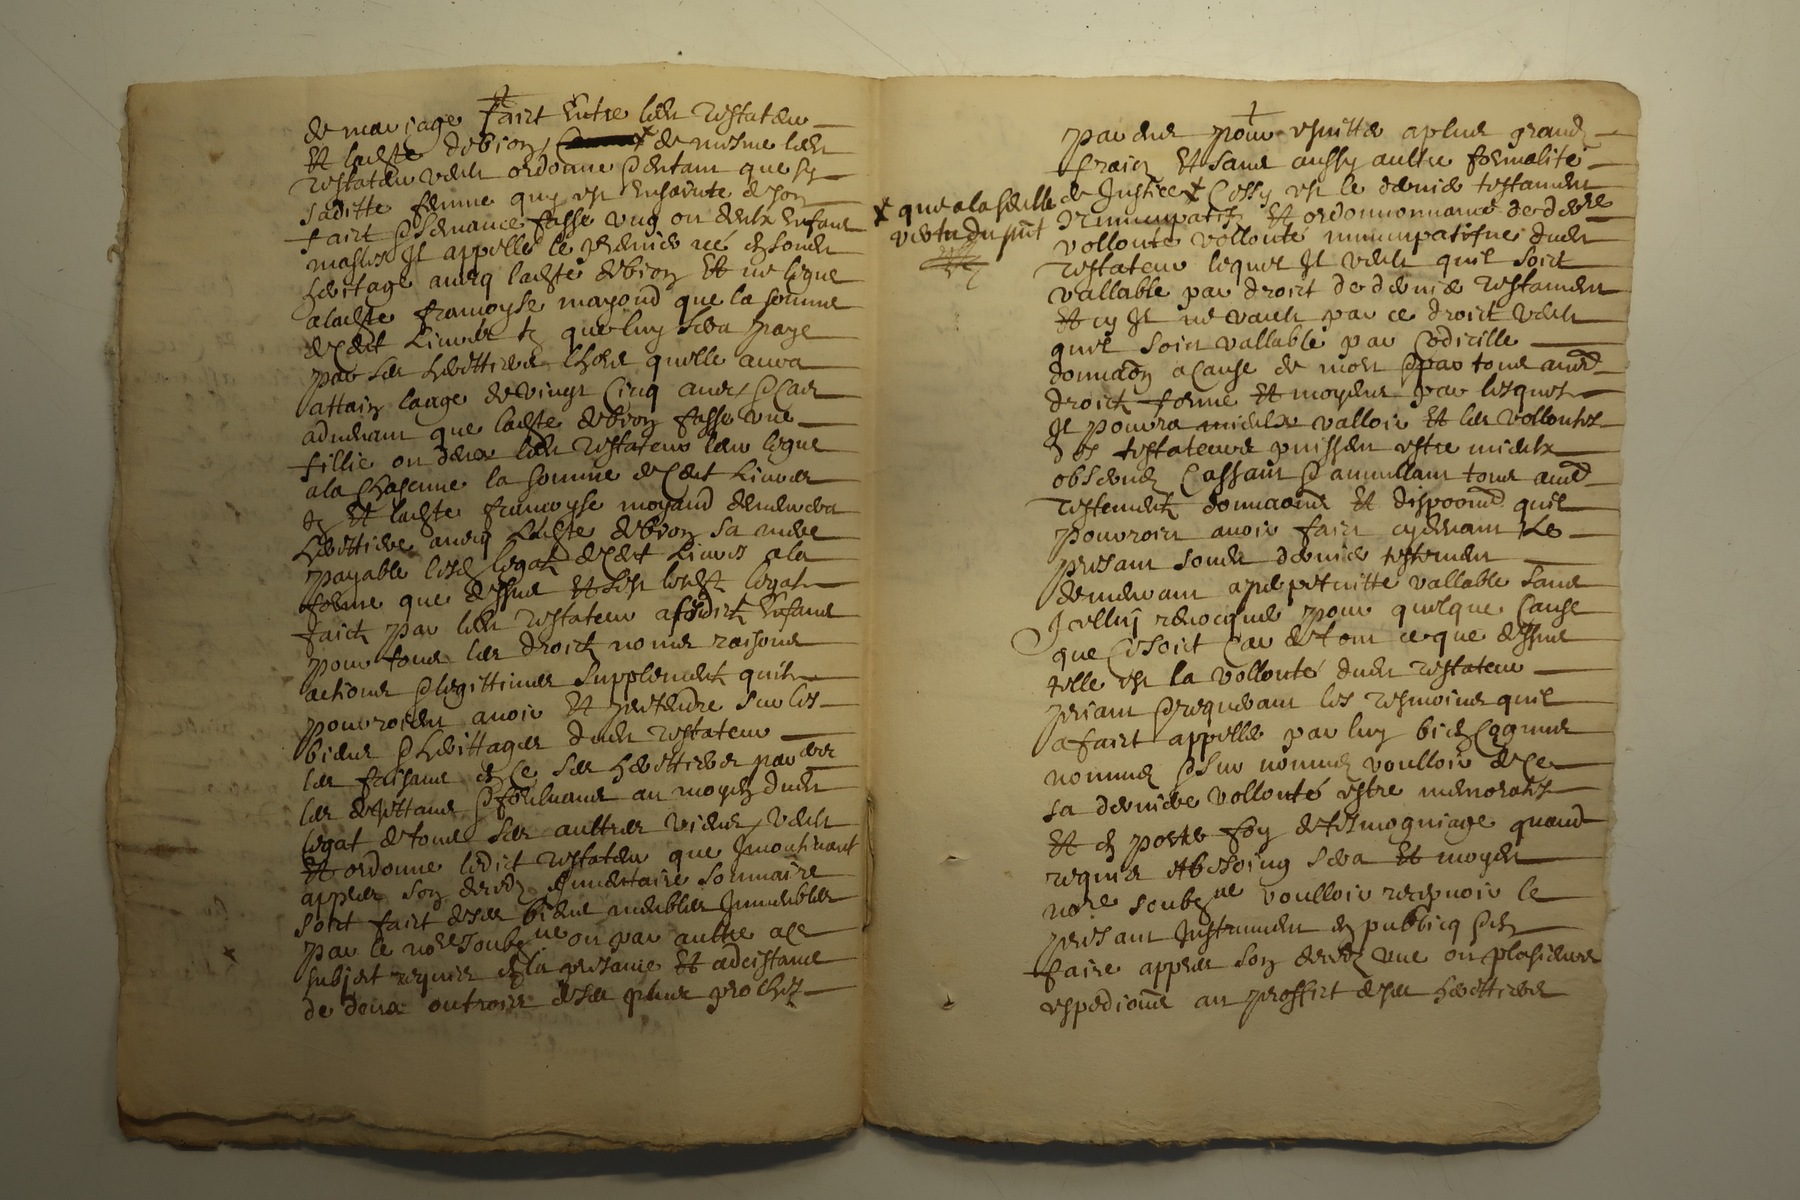 de mariage faict entre led testateur
et ladite debion de mesme led
testateur veult ordonne que sy
saditte femme quy est ensainte de son
faict fasse ung ou deulx enfans
masles Il appelle le premier né
heritage avecq ladite debion et ne legue
a ladite francoyse mayond que la somme
de cent livres que luy sera paye
par ses herittiers lhors quelle aura
attain laage de vingt cinq ans
advenant que ladite debion fasse une
fillie ou deux led testateur leur legue
a la chascune la somme de cent livres
et ladite francoyse mayand demeurera
herittiere avecq ladite debion sa mere
payable legat de cent livres a la
forme que dessus et legat
faict par led testateur enfans
pour tous les droict noms raisons
actions legittimes supplement quils
pourroient avoir et pretendre sur les
biens herittages dud testateur
les faisans ses herittiers par
les au moyen dud
legat de tous ses aultres biens veult
et ordonne ledict testateur que Incontinant
appres son deces Inventaire sommaire
soict faict de ses biens meubles Inmeubles
par le nore soubzne ou par aultre a ce
subject requis la presance et adcistance
de deux ou trois de ses plus proches
par eux pour esvitter a plus grandz
fraicz et sans aussy aultre formalité
de Justice x Cessy est le dernier testament
x que a la seulle
vertu du pnt
nuncupatif et ordonnonnance de dere
vollonte vollonté nuncupatifve dud
testateur lequel Il veult quil soict
vallable par droict de dernier testament
et sy Il ne vault par ce droict veult
quil soict vallable par codicille
donnaon a cause de mort par tous aues
droict forme et moyens par lesquels
Il pourra mieulx valloir et les vollontes
des testateurs puissent estre mieulx
observes cassant annullant tous aues
testement donnaons et dispoons quil
pourroict avoir faict cydevant le
presant soud dernier testement
demeurant vallable sans
Icelluy revocquer pour quelque cause
que ce soict car de tout ce que dessus
telle est la vollonté dud testateur
priant requerant les tesmoins quil
a faict appelle par luy bien cognus
nommes sur nommes voulloir de ce
sa derniere vollonté estre memoratifz
et en porter foy de tesmogniage quand
requis et besoing sera et moyen
nore soubzne voulloir recepvoir le
presant Instrument en publicq
faire appres son deces une ou plusieurs
expedions au proffict de ses herittiers